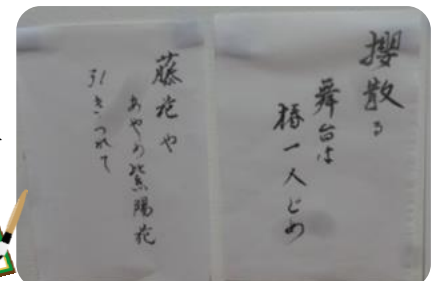 櫻散る
舞台は
椿一人じめ
藤花や
あやめ紫陽花
引きつれて